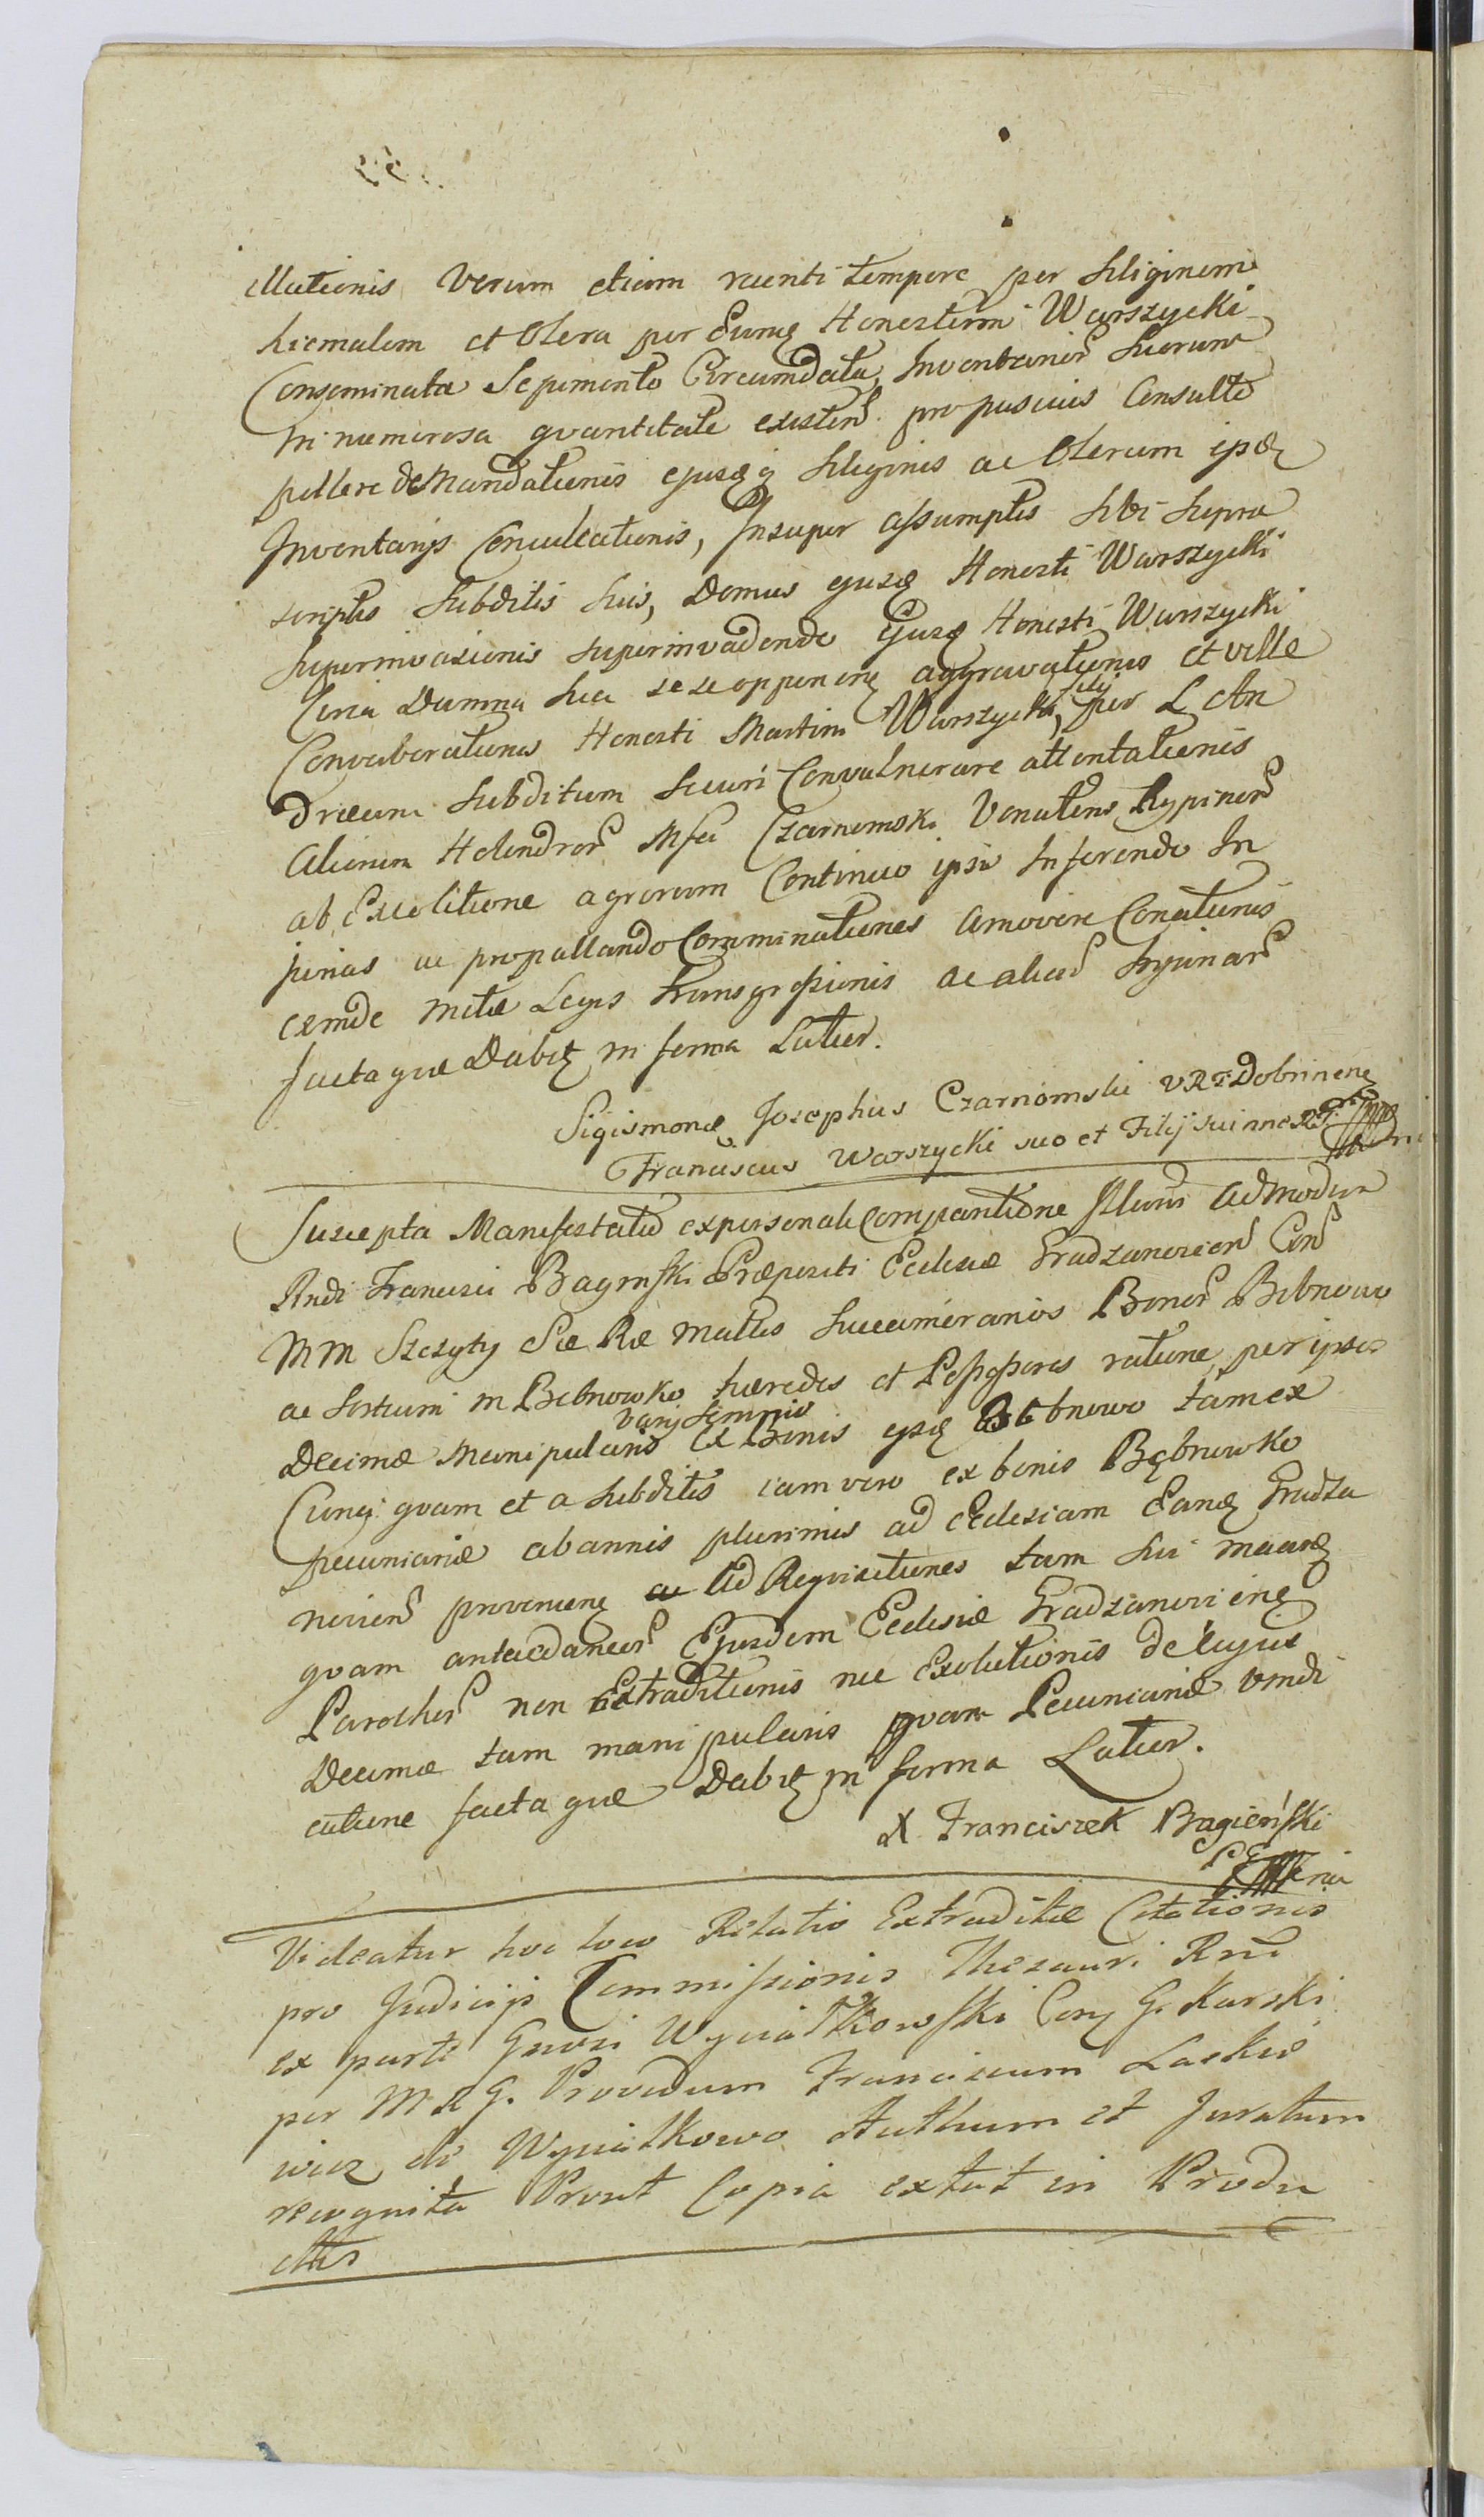 llationis Verum etiam recenti tempore per Siliginem
hiemalem et Olera per Eumq Honestum Warszycki
Conseminata Sepimento Circumdata, Inventarior Suorum
in numerosa quantitate existen propascuis Consulto
pellere de Mandationis ejusq Siliginis ac Olerum ipsoq
Inventarijs Conculcationis, Insuper assumptis sibi supra
scriptis Subditis suis, Domus ejusq Honesti Warszycki
Superinvasionis superinvadendo Ejusq Honesti Warszycki
Circa Damna sua sese opponenq aggravationis et velle
Converberationis Honesti Martini Warszycki, filij per L An
Dream Subditum Securi Convulnerare attentationis
Aliorum Holendror Mfci Czarnomski Venatens Rypinen
ab Excolitione agrorum Continuo ipsis Inferendo In
jurias ac propallando Comminationes amovere Conationis
Legis transgressionis ac aliar Injuriar
facta que Dabit in forma Latior.
Sigismond Josephus Czarnomski V R T Dobrinenq
Franciscus Warszycki suo et Filij sui nne
Suscepta Manifestatio ex personali Comparitione Illum Admodum
Rndi Francisci Baginski Præpositi Ecclesiæ Gradzanovien Con
MM Szczyty Sæ Ræ Mattis Succamerarios Bonor Bebnowo
ac Sortium in Bebnowko hæredes et Possessores ratione per ipsos
Varij Seminis
Decimæ Manipularis ex Bonis ipsq Bebnowo tam ex
Curiq quam et a Subditis iam vero ex bonis Bębnowko
pecuniariæ ab annis plurimis ad Ecclesiam Eanq Gradza
novien provenienq ad Requisitiones tam sui
quam antecedaneor Ejusdem Ecclesiæ Gradzanovienq
Parochor non Extraditionis nec Exolutionis de cujus
Decimæ tam manipularis quam Pecuniariæ vindi
catione facta que Dabit in forma Latior.
X Franciszek Bagieński
Videatur hoc loco Relatio Extraditæ Citationis
pro Judicijs Commissionis Thesauri Rni
ex parte Gnosi Wyciałkowski Con G. Karski
per M R G. Providum Franciscum Laskie
wicz de Wyciałkowo Authum et Juratum
recognita Prout Copia extat in Produ
ctis